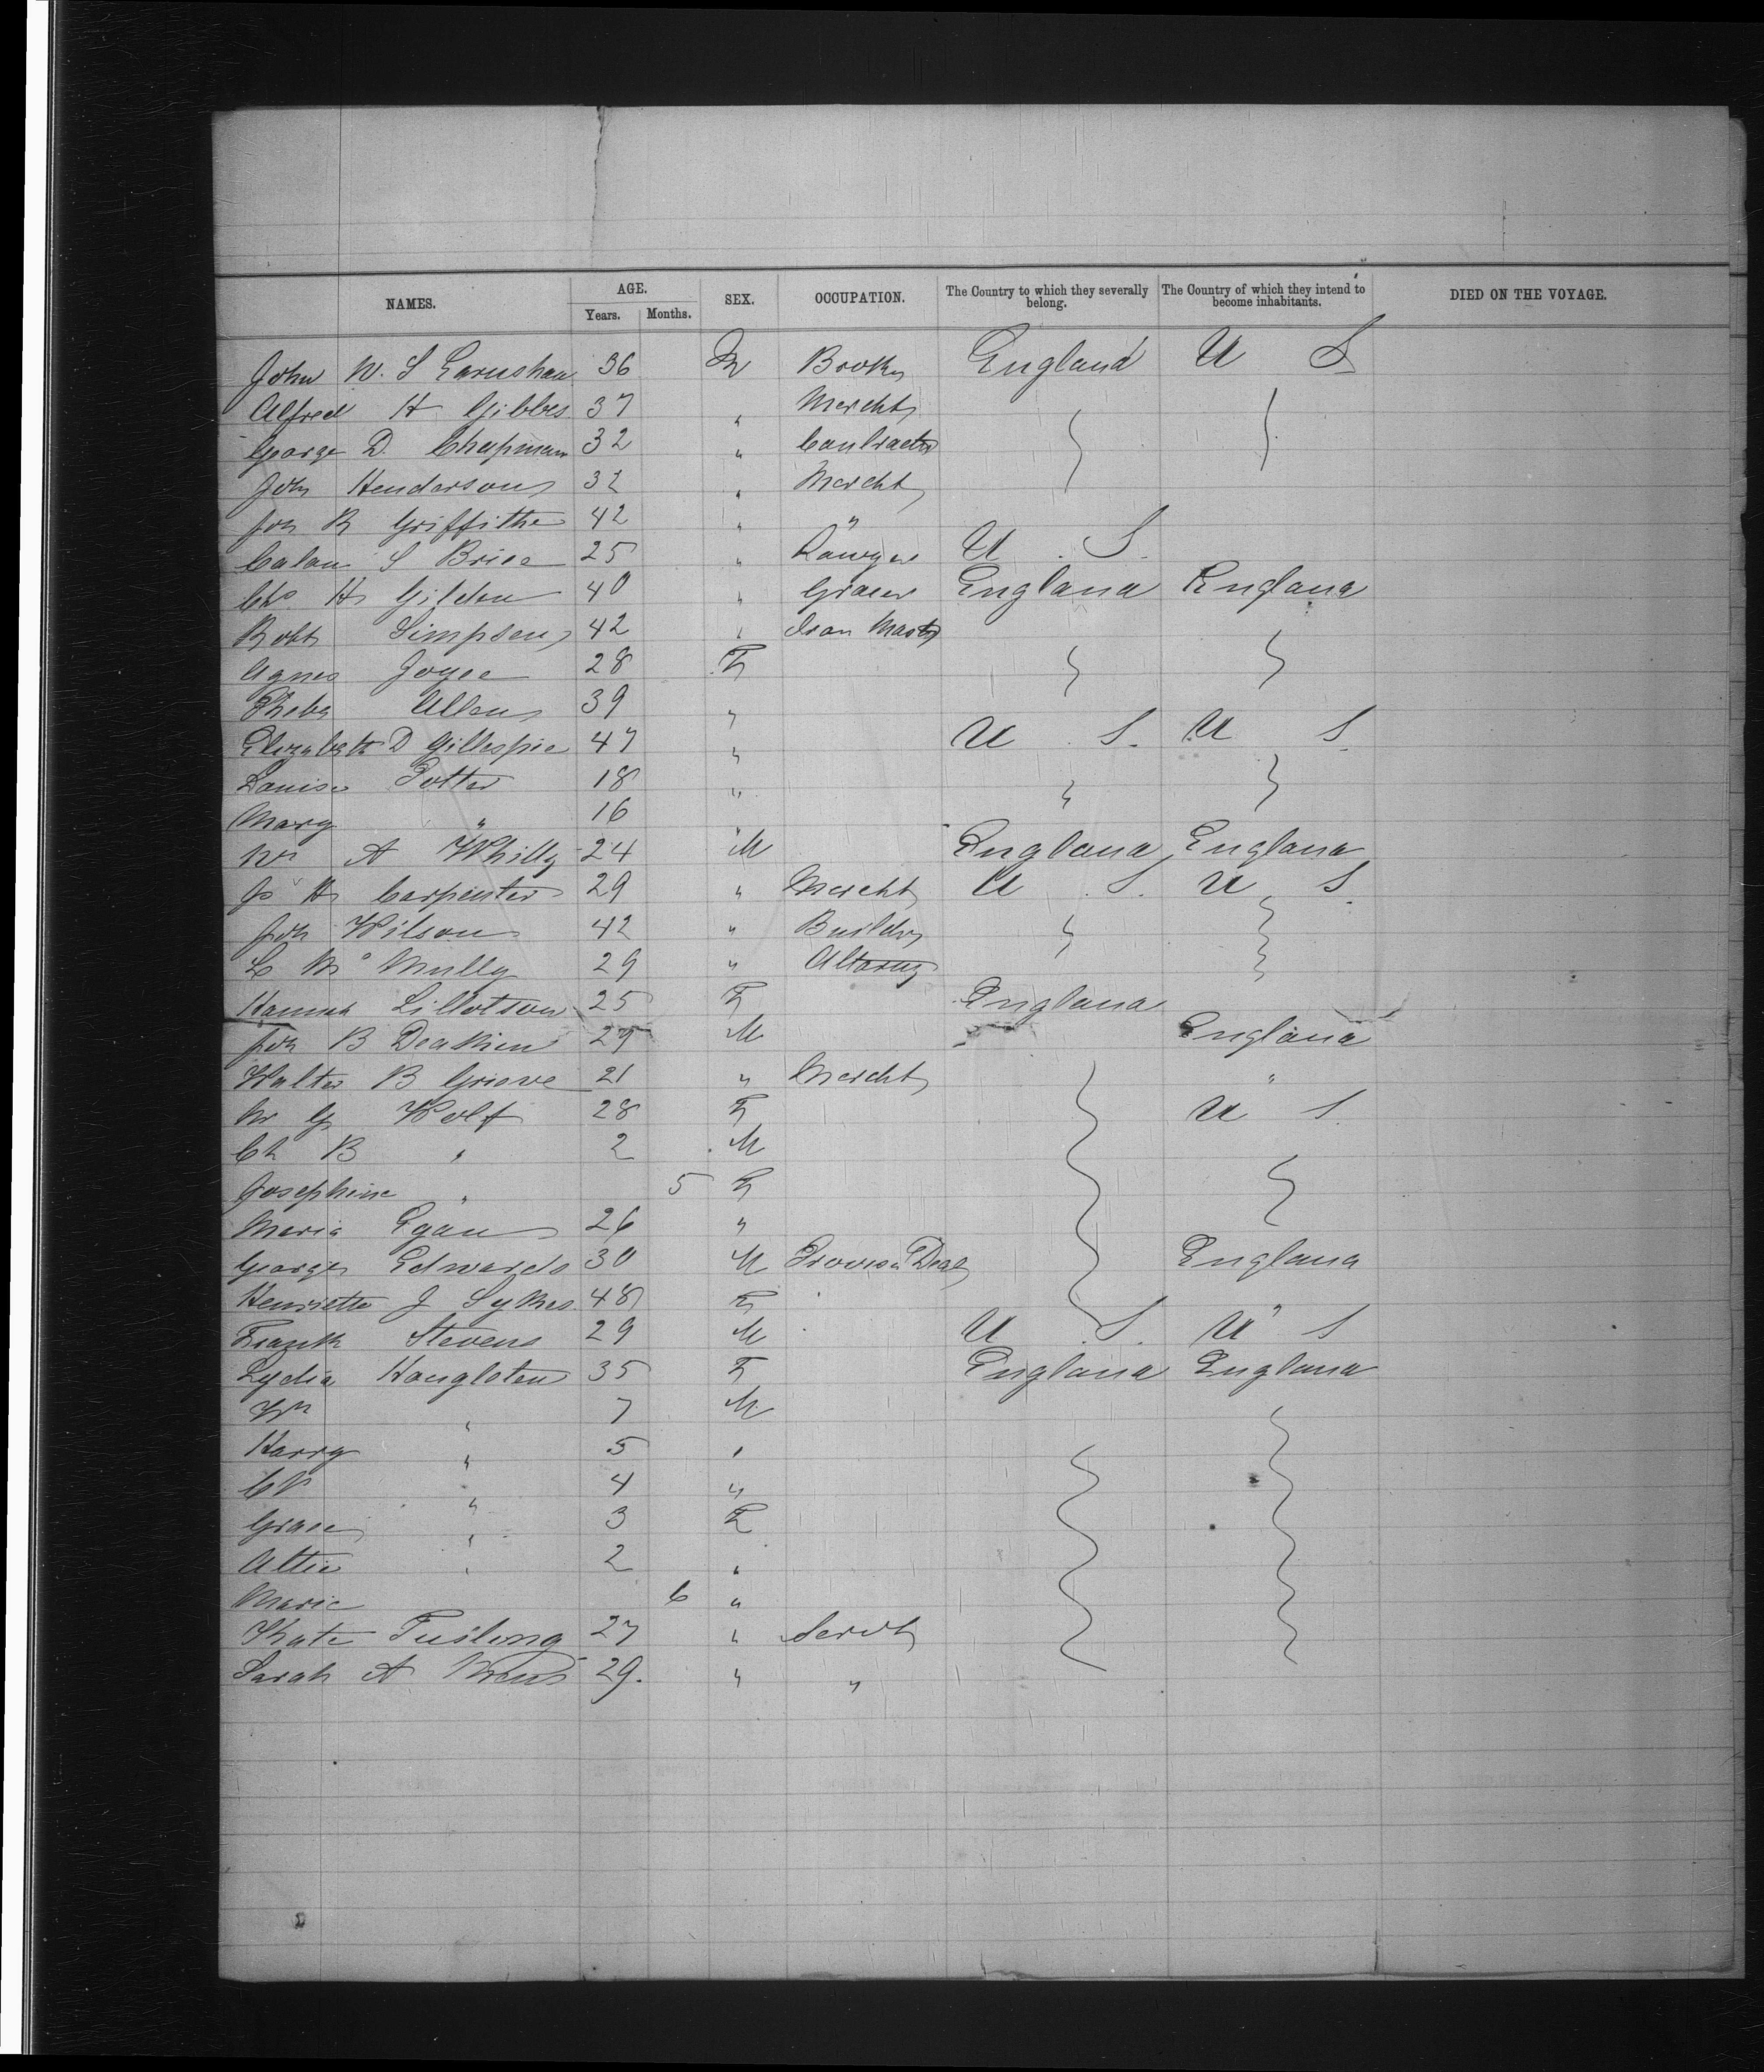 NAMES. AGE. Years. Months. SEX. OCCUPATION. The Country to which they severally belong. The Country of which they intend to become inhabitants. DIED ON THE VOYAGE.
John W. S Earnshaw 36 M Broker England U S
Alfred H Gibbes 37 " Mercht
George D. Chapman 32 " Contractor
Jon Henderson 32 " Mercht
Jon R Griffiths 42 " "
Calan S Brice 25 " Lawyer U S.
Chs H Gilden 40 " Grocer England England
Robt Simpson 42 " Iron Mastr
Agnes Joyce 28 F
Pheba Allen 39 "
Elizabeth D Gillespie 47 " U S. U S.
Louisa Potter 18 " "
Mary " 16 "
Wm A Whilly 24 M England England
Js H Carpenter 29 " Mercht U S. U S.
Jon Wilson 42 " Builder "
L Mc Nully 29 "
Hannah Lillotson 25 F England
Jon B Deakin 29 M England
Walter B Grieve 21 " Mercht "
M G Wolf 28 F U S.
Ch B " 2 M
Josephine " 5 F
Maria Egan 26 "
George Edwards 30 M Provisn Dealr England
Henrietta J Sykes 48 F "
Frank Stevens 29 M U S. U S
Lydia Hougloten 35 F England England
Wm " 7 M
Harry " 5 "
" 4 "
Grace " 3 F
Altie " 2 "
Marie 6 "
Kate Furlong 27 " Servt
Sarah A 29. " "